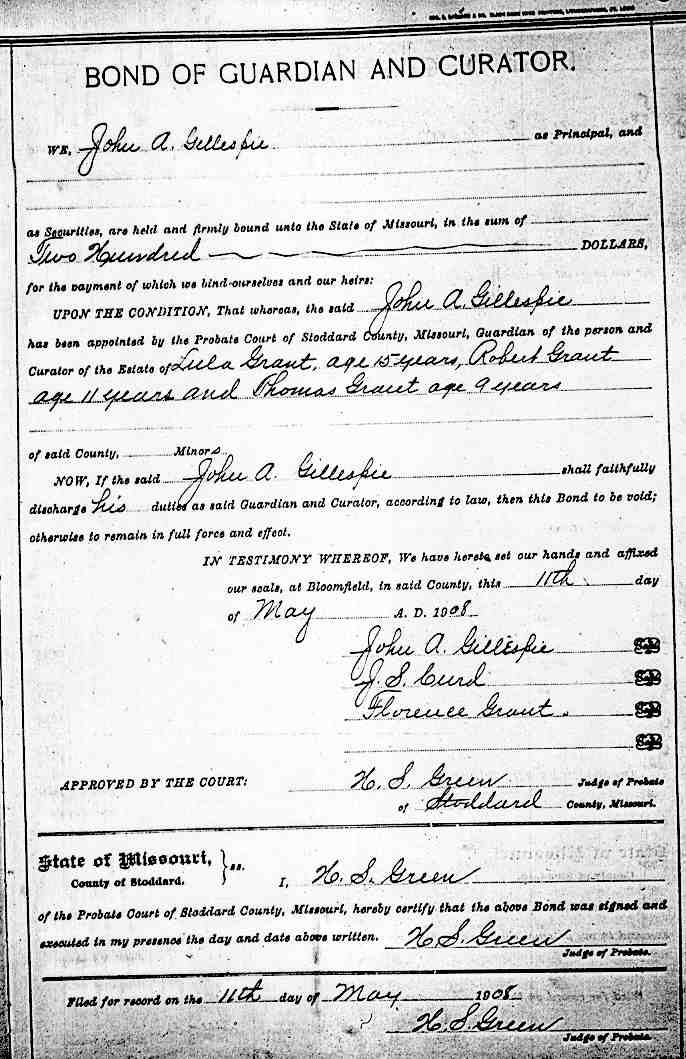 BOND OF GUARDIAN AND CURATOR.
WE, John A. Gillespie as Principal, and
as Securities, are held and firmly bound unto the State of Missouri, in the sum of
Two Hundred DOLLARS,
for the payment of which we bind ourselves and our heirs:
UPON THE CONDITION, That whereas, the said John A. Gillespie
has been appointed by the Probate Court of Stoddard County, Missouri, Guardian of the person and
Curator of the Estate of Lula Grant, age 15 years, Robert Grant
age 11 years and Thomas Grant age 9 years
of said County, Minors
NOW, If the said John A. Gillespie shall faithfully
discharge his duties as said Guardian and Curator, according to law, then this Bond to be void;
otherwise to remain in full force and effect.
IN TESTIMONY WHEREOF, We have hereto set our hands and affixed
our seals, at Bloomfield, in said County, this 11th day
of May A. D. 1908
John A. Gillespie Seal
J. S. Curd Seal
Florence Grant. Seal
Seal
APPROVED BY THE COURT: H. S. Green Judge of Probate
of Stoddard County, Missouri.
State of Missouri, } ss.
County of Stoddard. I, H. S. Green
of the Probate Court of Stoddard County, Missouri, hereby certify that the above Bond was signed and
executed in my presence the day and date above written. H S Green
Judge of Probate.
Filed for record on the 11th day of May 1908
H. S. Green
Judge of Probate.